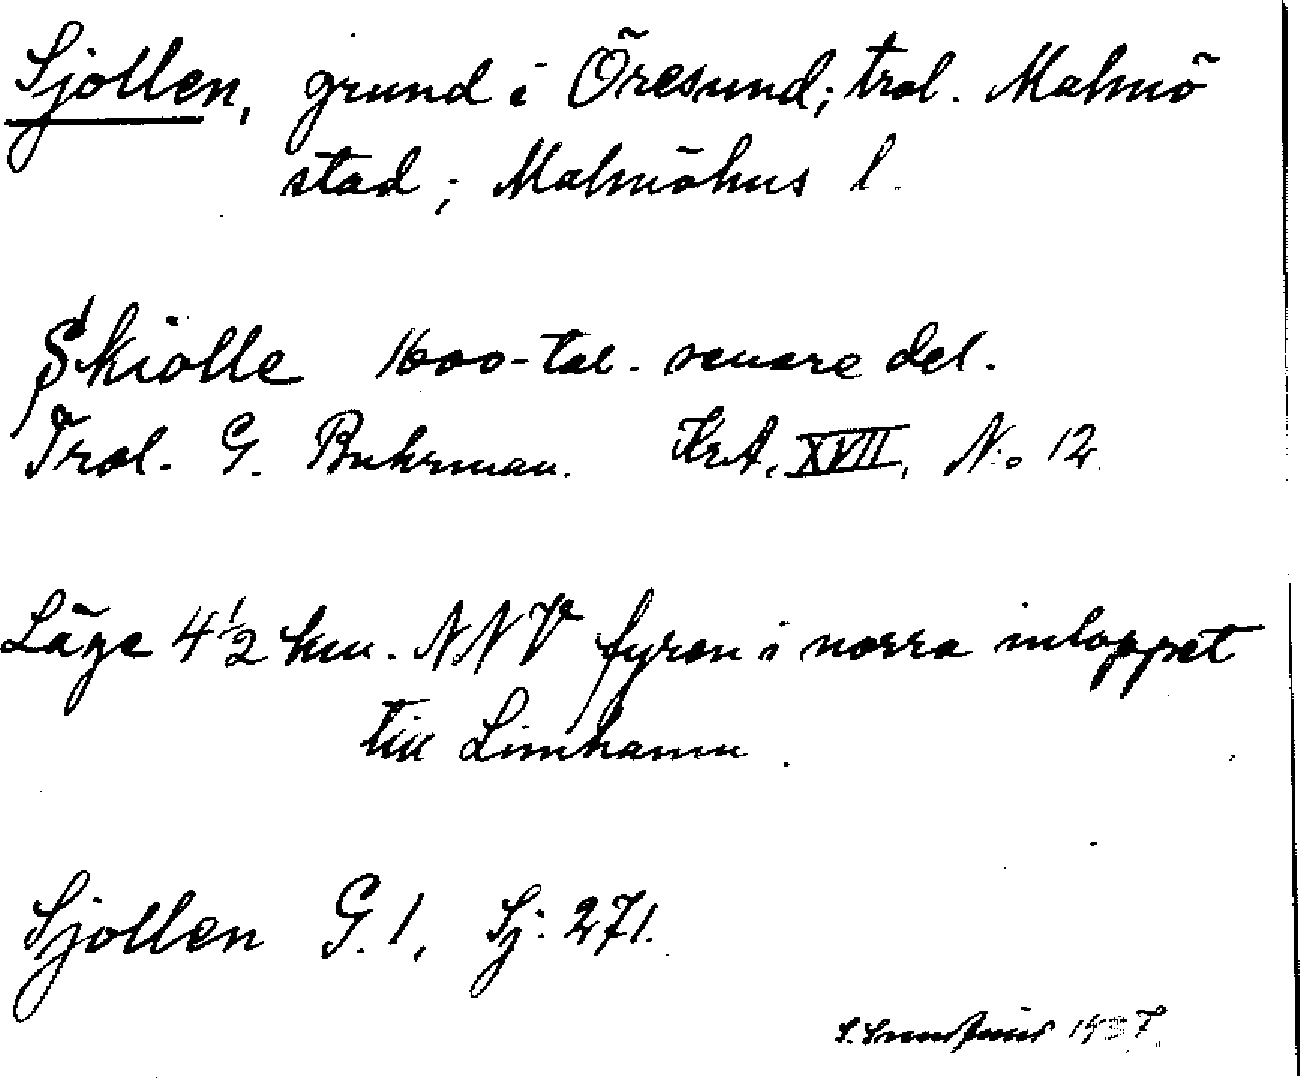 Sjollen, grund i Öresund; trol. Malmö
stad; Malmöhus l.
Skiölle 1600-tal. senare del.
Trol. G. Buhrman. KrA. XVII, N:o 12
Läge 4 1/2 km. NNV fyren i norra inloppet
till Limhamn.
Sjollen G. 1, Sj: 271.
1937